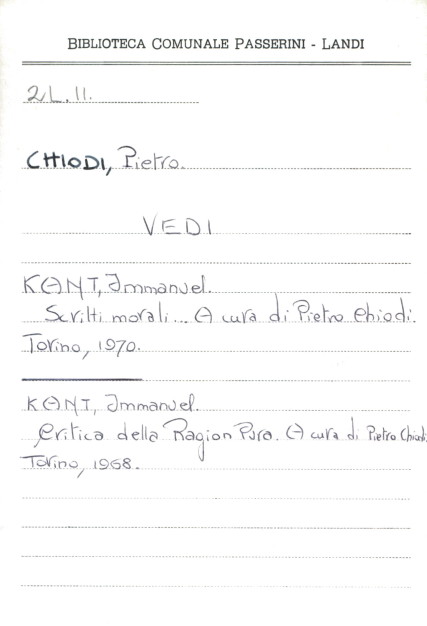 BIBLIOTECA COMUNALE PASSERINI - LANDI
2L.II.
CHIODI, Pietro.
VEDI
KANT, Immanuel.
Scritti morali... A cura di Pietro Chiodi.
Torino, 1970.
KANT, Immanuel.
Critica della Ragion Pura. A cura di Pietro Chiodi.
Torino, 1968.